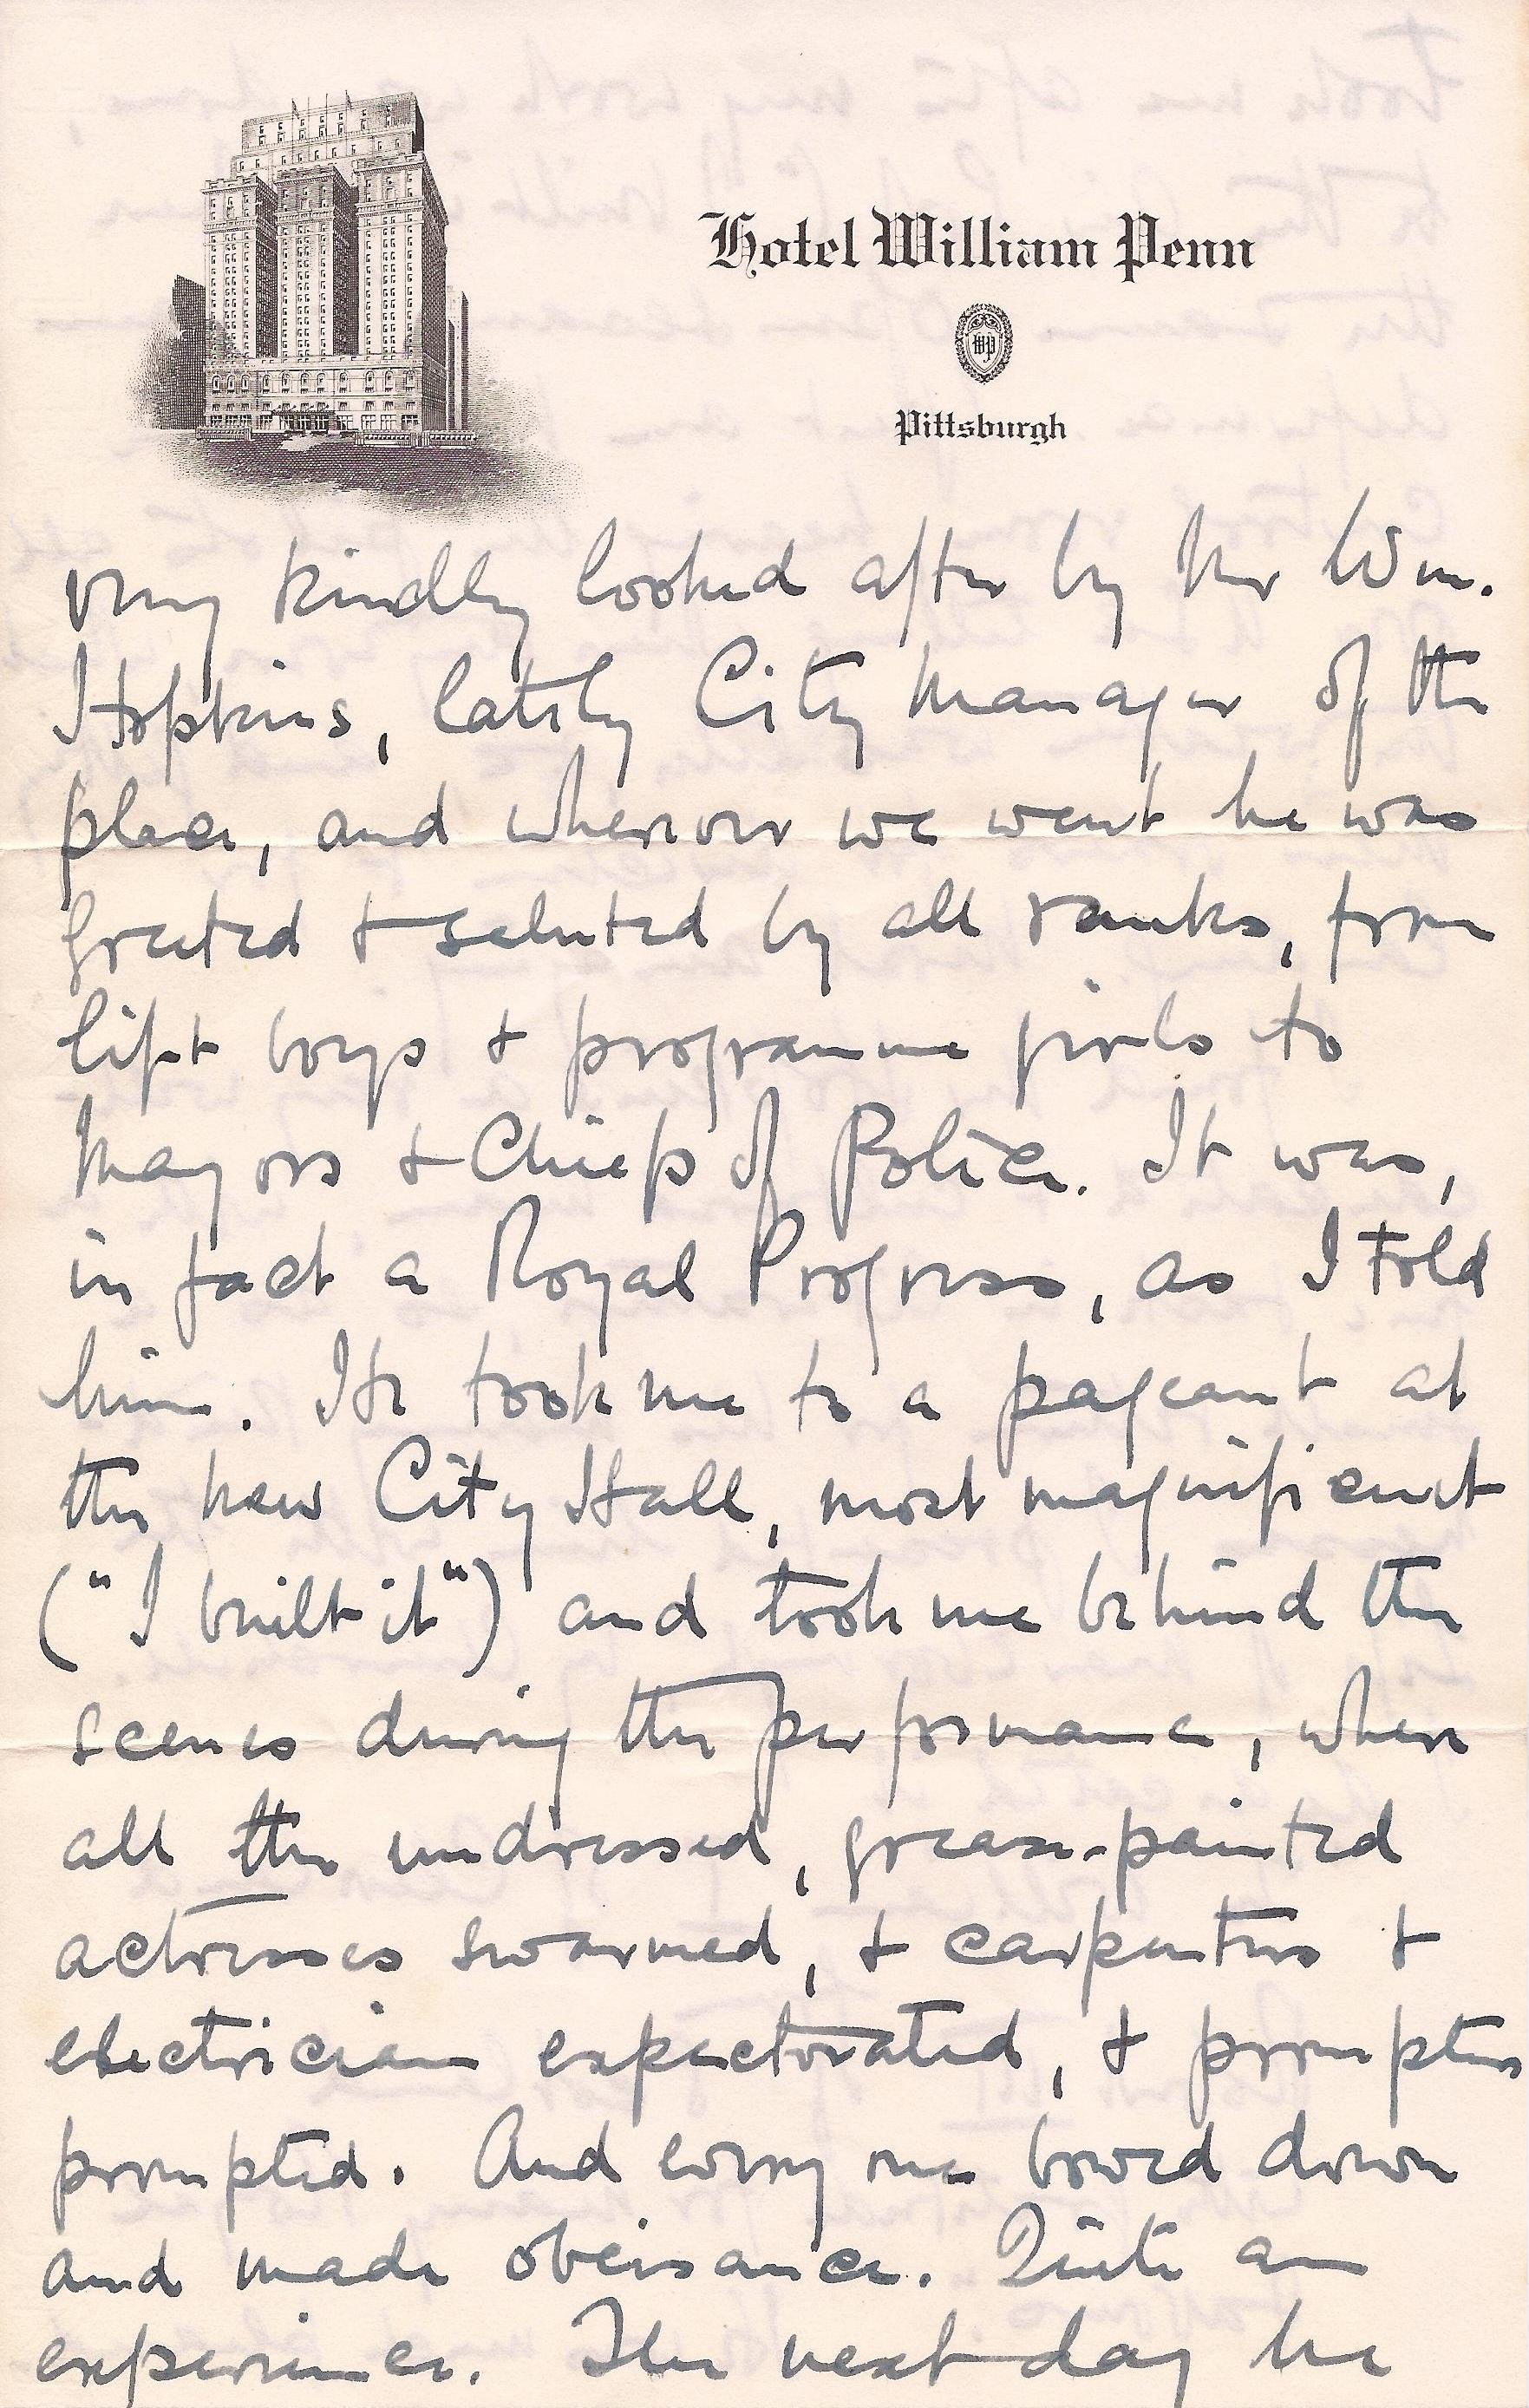 Hotel William Penn
WP
Pittsburgh
very kindly looked after by Mr Wm.
Hopkins, lately City Manager of the
place, and wherever we went he was
greeted & saluted by all ranks, from
lift boys & programme girls to
Mayors & Chiefs of Police. It was,
in fact a Royal Progress, as I told
him. He took me to a pageant at
the new City Hall, most magnificent
("I built it") and took me behind the
scenes during the performance, where
all the undressed, grease-painted
actresses swarmed, & carpenters &
electricians expectorated, & prompters
prompted. And every one bowed down
and made obeisance. Quite an
experience. The next day he